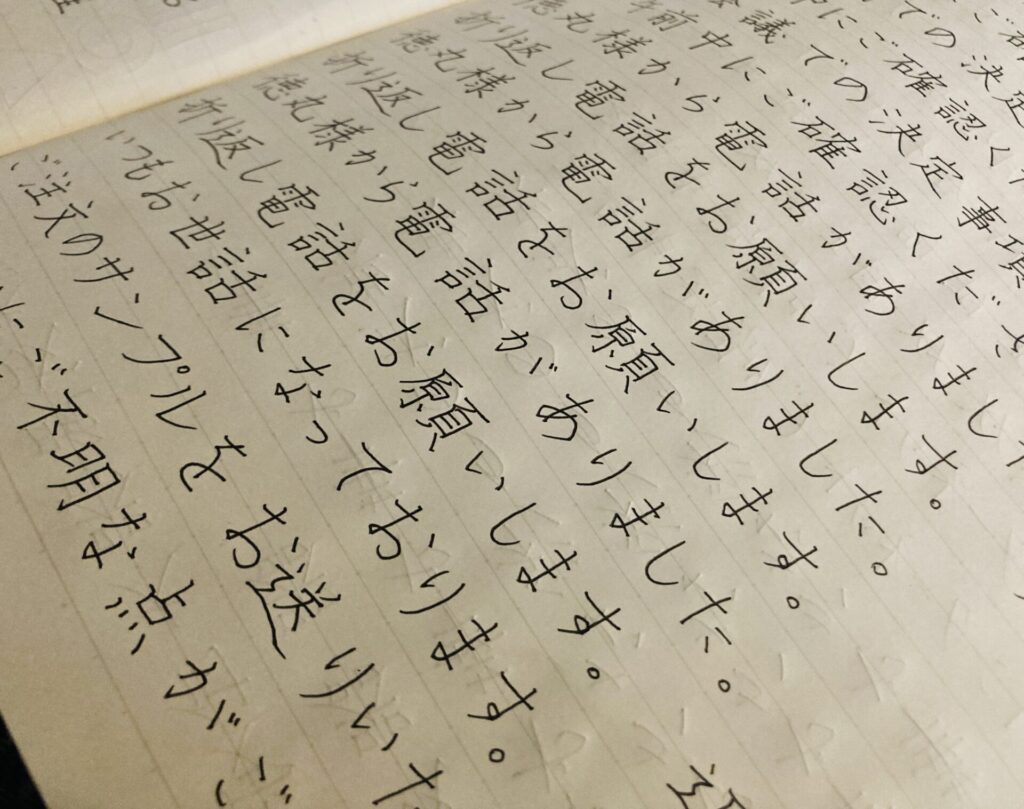 ご確
での決定
中にご確認くだ
会議での決定事項
午前中にご確認くださ
徳丸様から電話がありました
折り返し電話をお願いします。
徳丸様から電話がありました。
折り返し電話をお願いします。
徳丸様から電話がありました。
折り返し電話をお願いします。
いつもお世話になっております。
ご注文のサンプルをお送りいた
ご不明な点がご